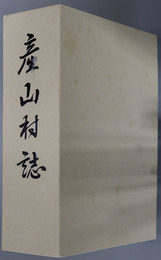 産山村誌